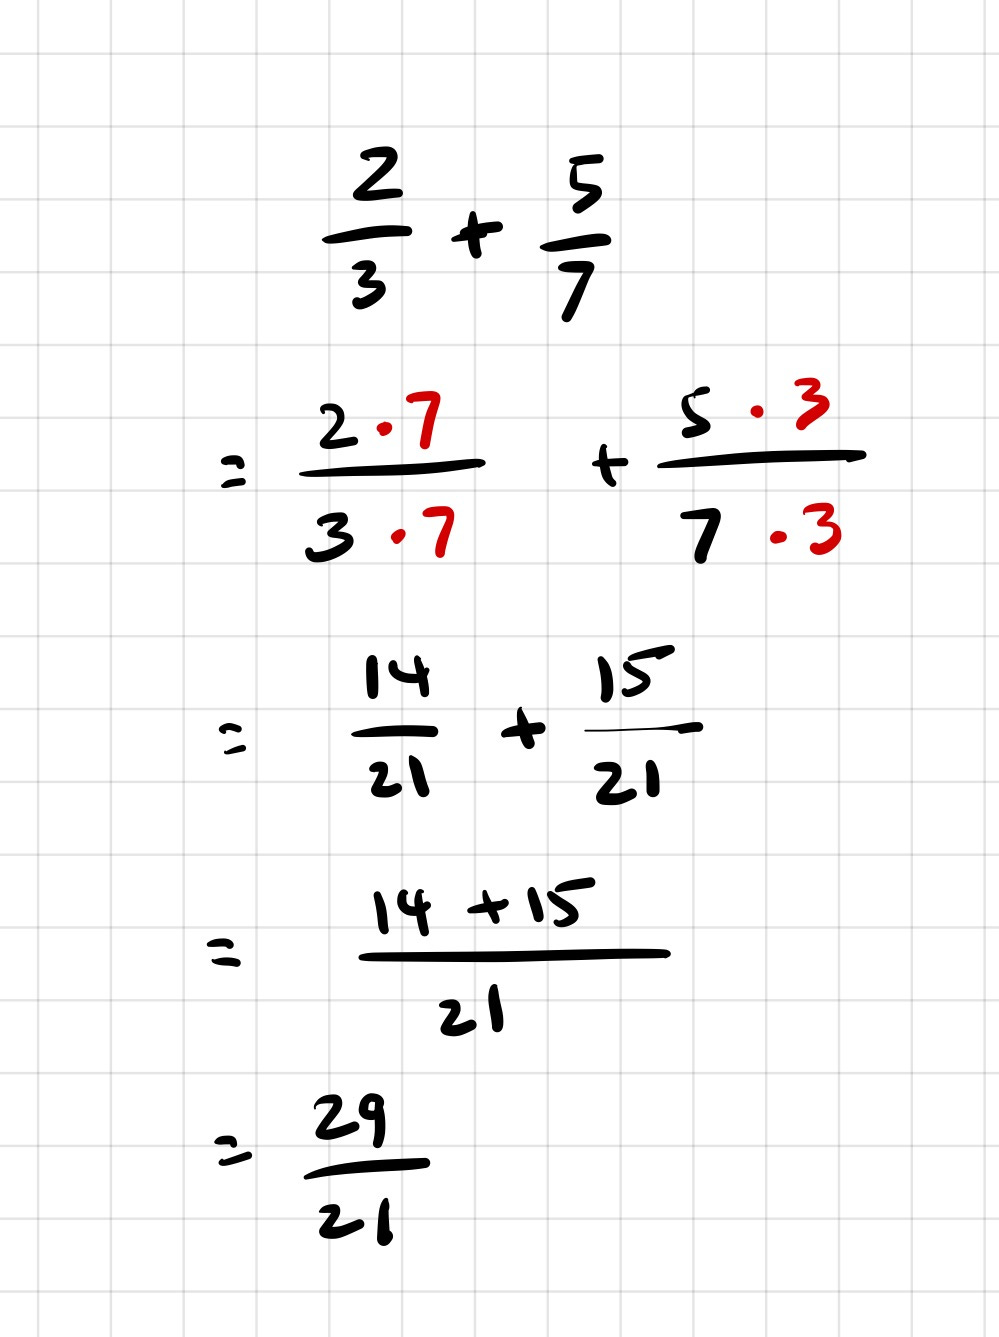 2/3 + 5/7
= (2 · 7)/(3 · 7) + (5 · 3)/(7 · 3)
= 14/21 + 15/21
= (14 + 15)/21
= 29/21